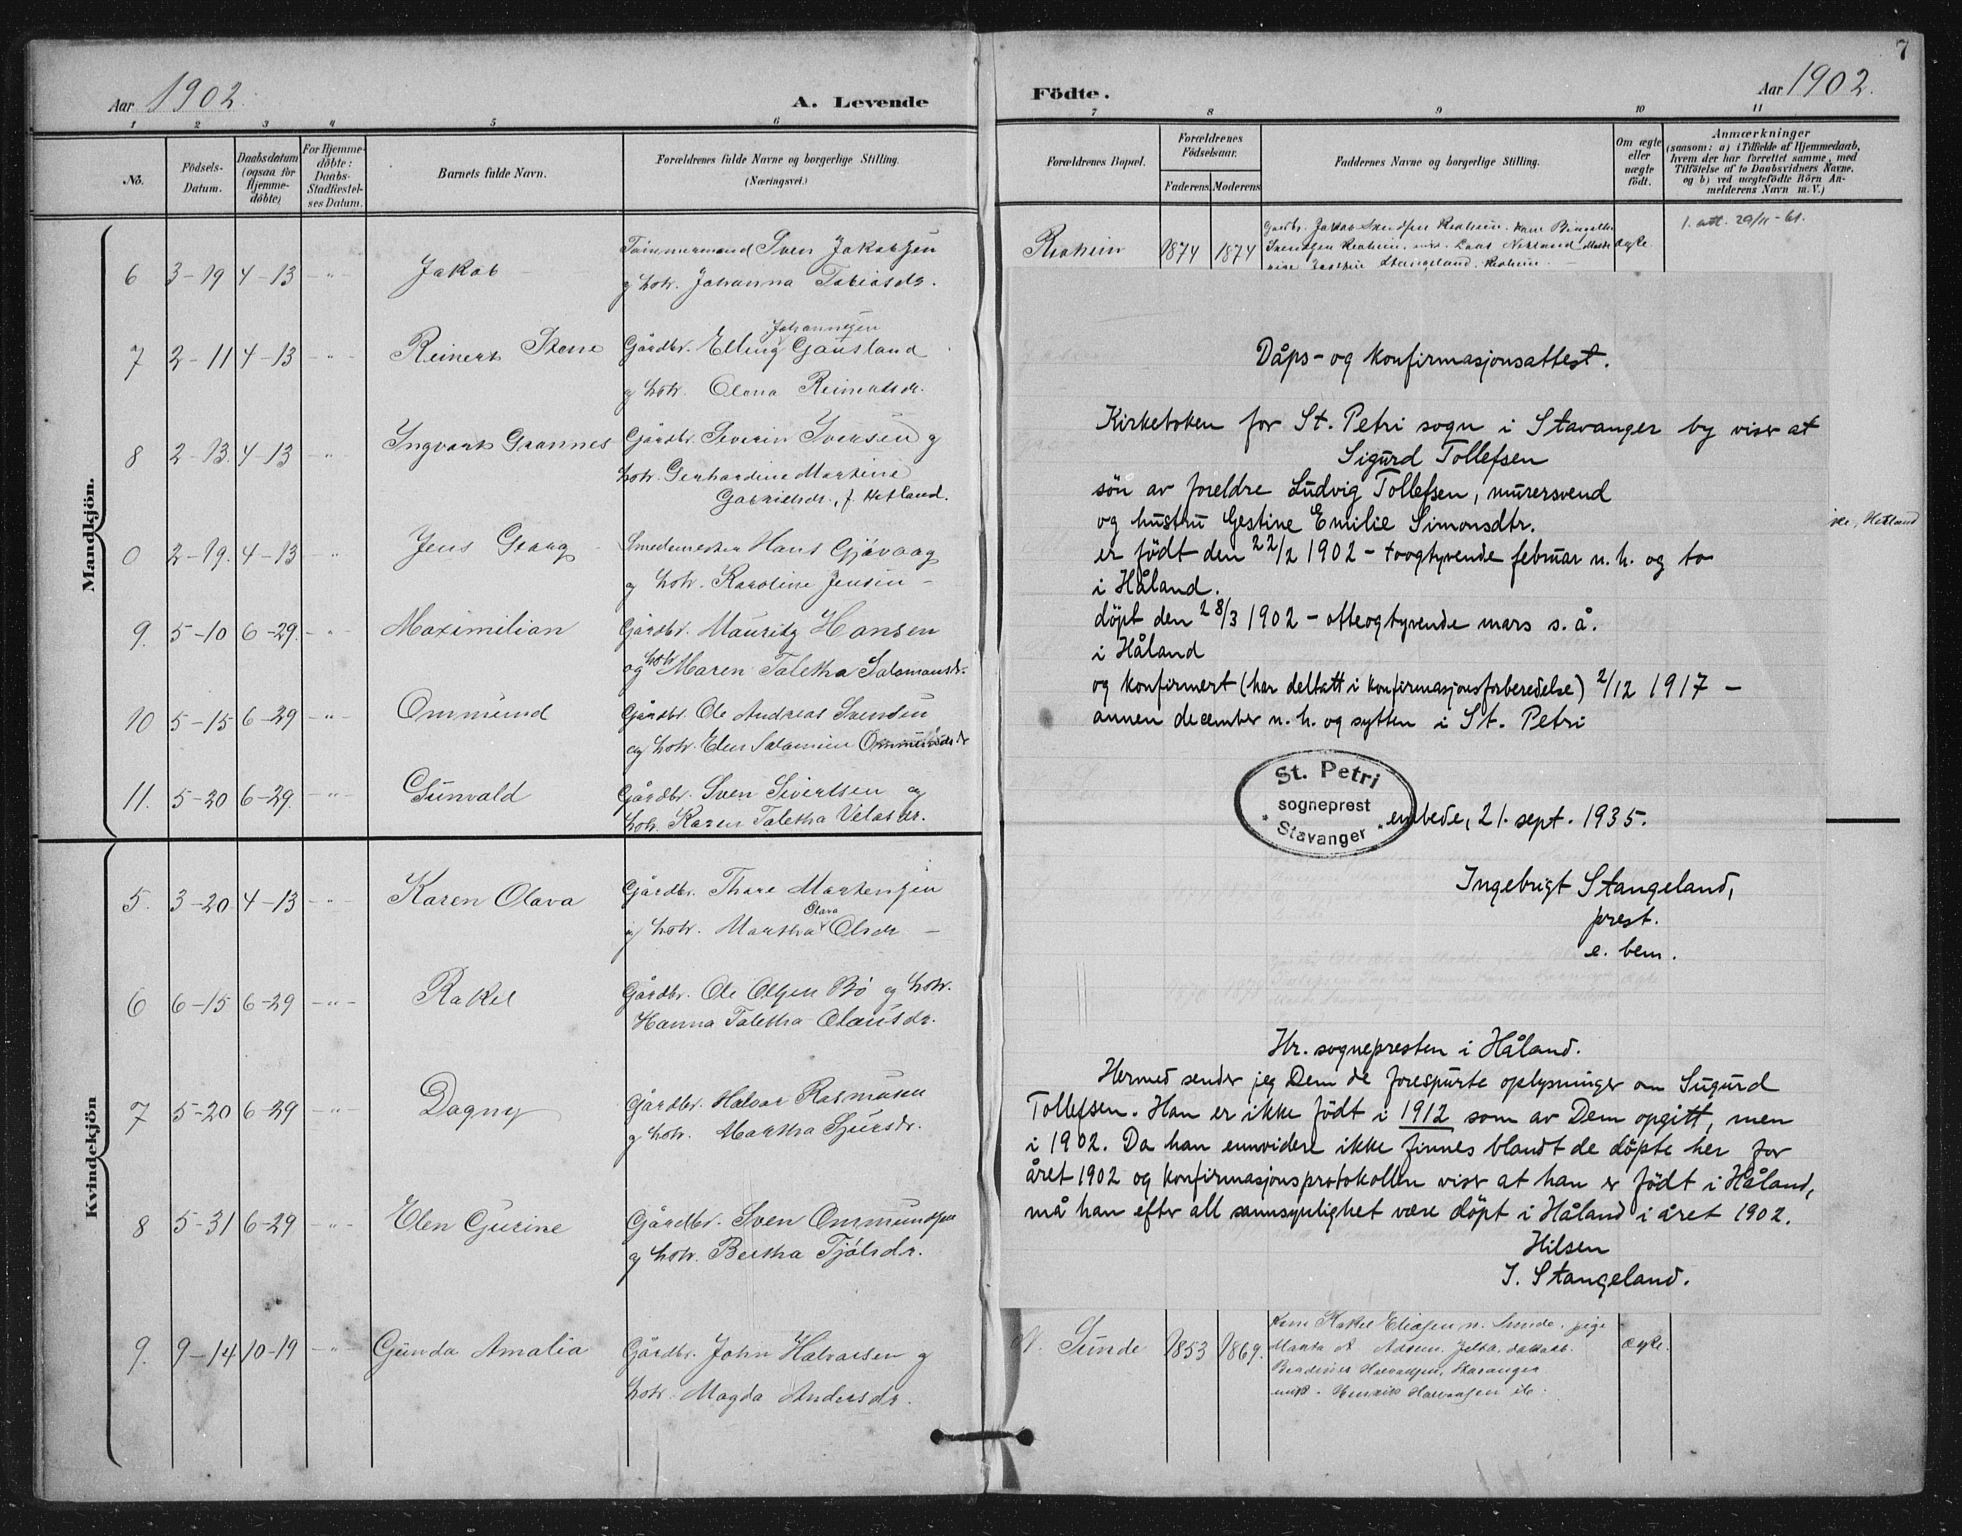 7
Aar 1902.
A. Levende
Födte.
Aar 1902.
1 2 3 4 5 6 7 8 9 10 11
No.
Födsels-Datum.
Daabsdatum (ogsaa for Hjemme-döbte)
For Hjemme-döbte: Daabs-Stadfæstel-ses Datum.
Barnets fulde Navn.
Forældrenes fulde Navne og borgerlige Stilling.
(Næringsvei.)
Forældrenes Bopæl.
Forældrenes Födselsaar.
Faderens Moderens
Faddernes Navne og borgerlige Stilling.
Om ægte eller uægte født.
Anmærkninger
(saasom: a) i Tilfælde af Hjemmedaab,
hvem der har forrettet samme, med
Tilföielse af to Daabsvidners Navne,
og b) ved uægtefödte Börn An-
melderens Navn m. V.)
Mandkjön.
6 3-19 4-13 -"- Jakob Tømmermand Sven Jakobsen
og Hstr. Johanna Tobiasdr.
Risheim 1874 1874
ægte.
1. att. 29/11-61.
7 2-11 4-13 -"- Reinert Stene Gårdbr. Elling Johannesen Gausland
og Hstr. Olena Reinertsdr.
8 2-13. 4-13 -"- Ingvart Grannes Gårdbr. Severin Iversen og
Hstr. Gerhardine Martine
Gabrielsdr., f. Hetland.
0 2-19. 4-13 -"- Jens Georg Smedemester Hans Gjøvaag
og Hstr. Karoline Jensen -
9. 5-10 6-29. -"- Maximilian Gårdbr. Mauritz Hansen
og Hstr. Maren Taletha Salomonsdr.
10 5-15 6-29 -"- Ommund Gårdbr. Ole Andreas Svendsen
og Hstr. Elen Salamine Ommundsdr
11. 5-20 6-29. -"- Gunvald Gårdbr. Sven Sivertsen og
Hstr. Karen Taletha Velasdr.
Kvindekjön
5. 3-20 4-13 -"- Karen Olava Gårdbr. Thore Mortensen
og Hstr. Martha Olava Olsdr -
6 6-15 6-29 -"- Rakel Gårdbr. Ole Olsen Bø og Hstr.
Hanna Taletha Olausdr.
7 5-20 6-29 -"- Dagny Gårdbr. Halvor Rasmusen
og Hstr. Martha Sjursdr.
8 5-31 6-29 -"- Elen Gurine Gårdbr. Sven Ommundsen
og Hstr. Bertha Tjølsdr.
9. 9-14 10-19 -"- Gunda Amalia Gårdbr. John Halvorsen og
Hstr. Magda Andersdr.
Dåps- og konfirmasjonsattest.
Kirkeboken for St. Petri sogn i Stavanger by viser at
Sigurd Tollefsen
søn av foreldre Ludvig Tollefsen, murersvend
og hustru Gestine Emilie Simonsdtr.
er født den 22/2 1902 - toogtyvende februar n. h. og to
i Håland.
døpt den 28/3 1902 - otteogtyvende mars s. å.
i Håland
og konfirmert (har deltatt i konfirmasjonsforberedelse) 2/12 1917 -
annen december n. h. og sytten i St. Petri
St. Petri
sogneprest
* Stavanger *
embede, 21. sept. 1935.
Ingebrigt Stangeland,
prest.
e. bem.
Hr. sognepresten i Håland.
Hermed sender jeg Dem de forespurte oplysninger om Sugurd
Tollefsen. Han er ikke født i 1912 som av Dem opgitt, men
i 1902. Da han ennvidere ikke finnes blandt de døpte her for
året 1902 og konfirmasjonsprotokollen viser at han er født i Håland,
må han efter all sannsynlighet være døpt i Håland i året 1902.
Hilsen
I. Stangeland.
Hetland
N. Sunde 1853 1869.
ægte.